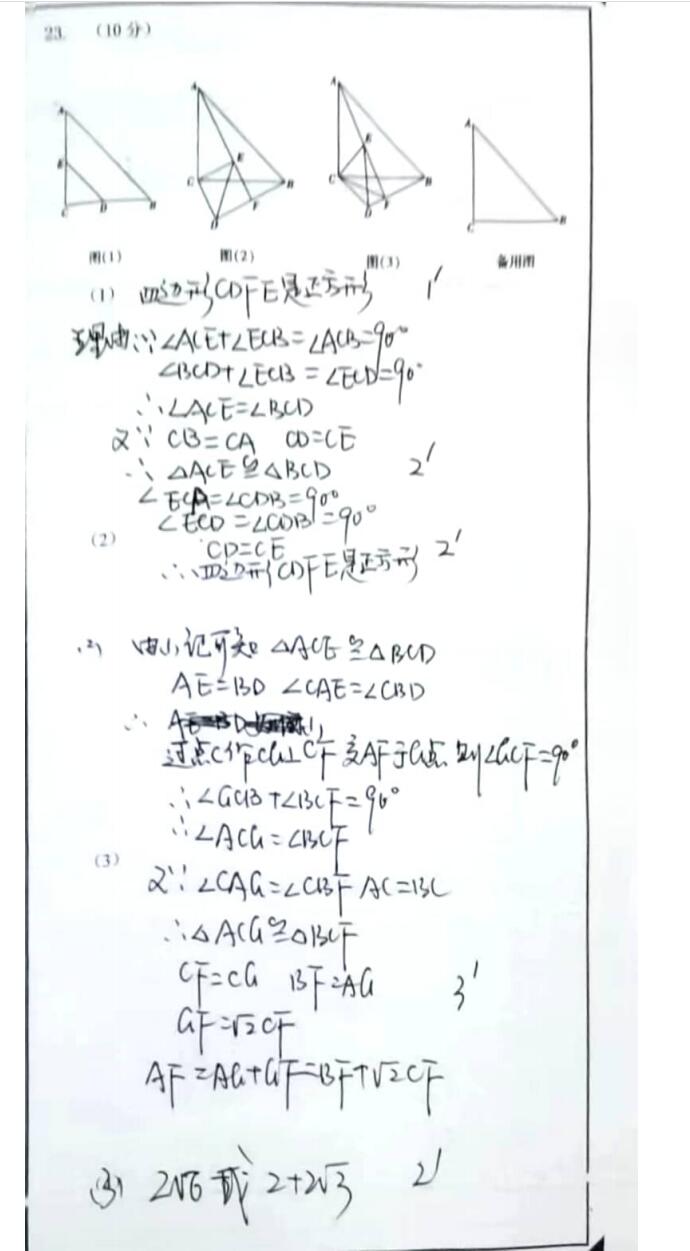 23. (10分)
A A A A
E E E
C D B C B C B C B
D F D F
图(1) 图(2) 图(3) 备用图
(1) 四边形CDFE是正方形 1'
理由:∵∠ACE+∠ECB=∠ACB=90°
∠BCD+∠ECB=∠ECD=90°
∴∠ACE=∠BCD
又∵ CB=CA CD=CE
∴ △ACE≌△BCD 2'
∠ECA=∠CDB=90°
∠ECD=∠CDB=90°
(2) CD=CE
∴四边形CDFE是正方形 2'
(2) 由(1)记可知 △ACE≌△BCD
AE=BD ∠CAE=∠CBD
∴
过点C作CG⊥CF交AF于G点.则∠GCF=90°
∴∠GCB+∠BCF=90°
∴∠ACG=∠BCF
(3)
又∵ ∠CAG=∠CBF AC=BC
∴△ACG≌△BCF
CF=CG BF=AG 3'
GF=√2CF
AF=AG+GF=BF+√2CF
(3) 2√6或 2+2√3 2'